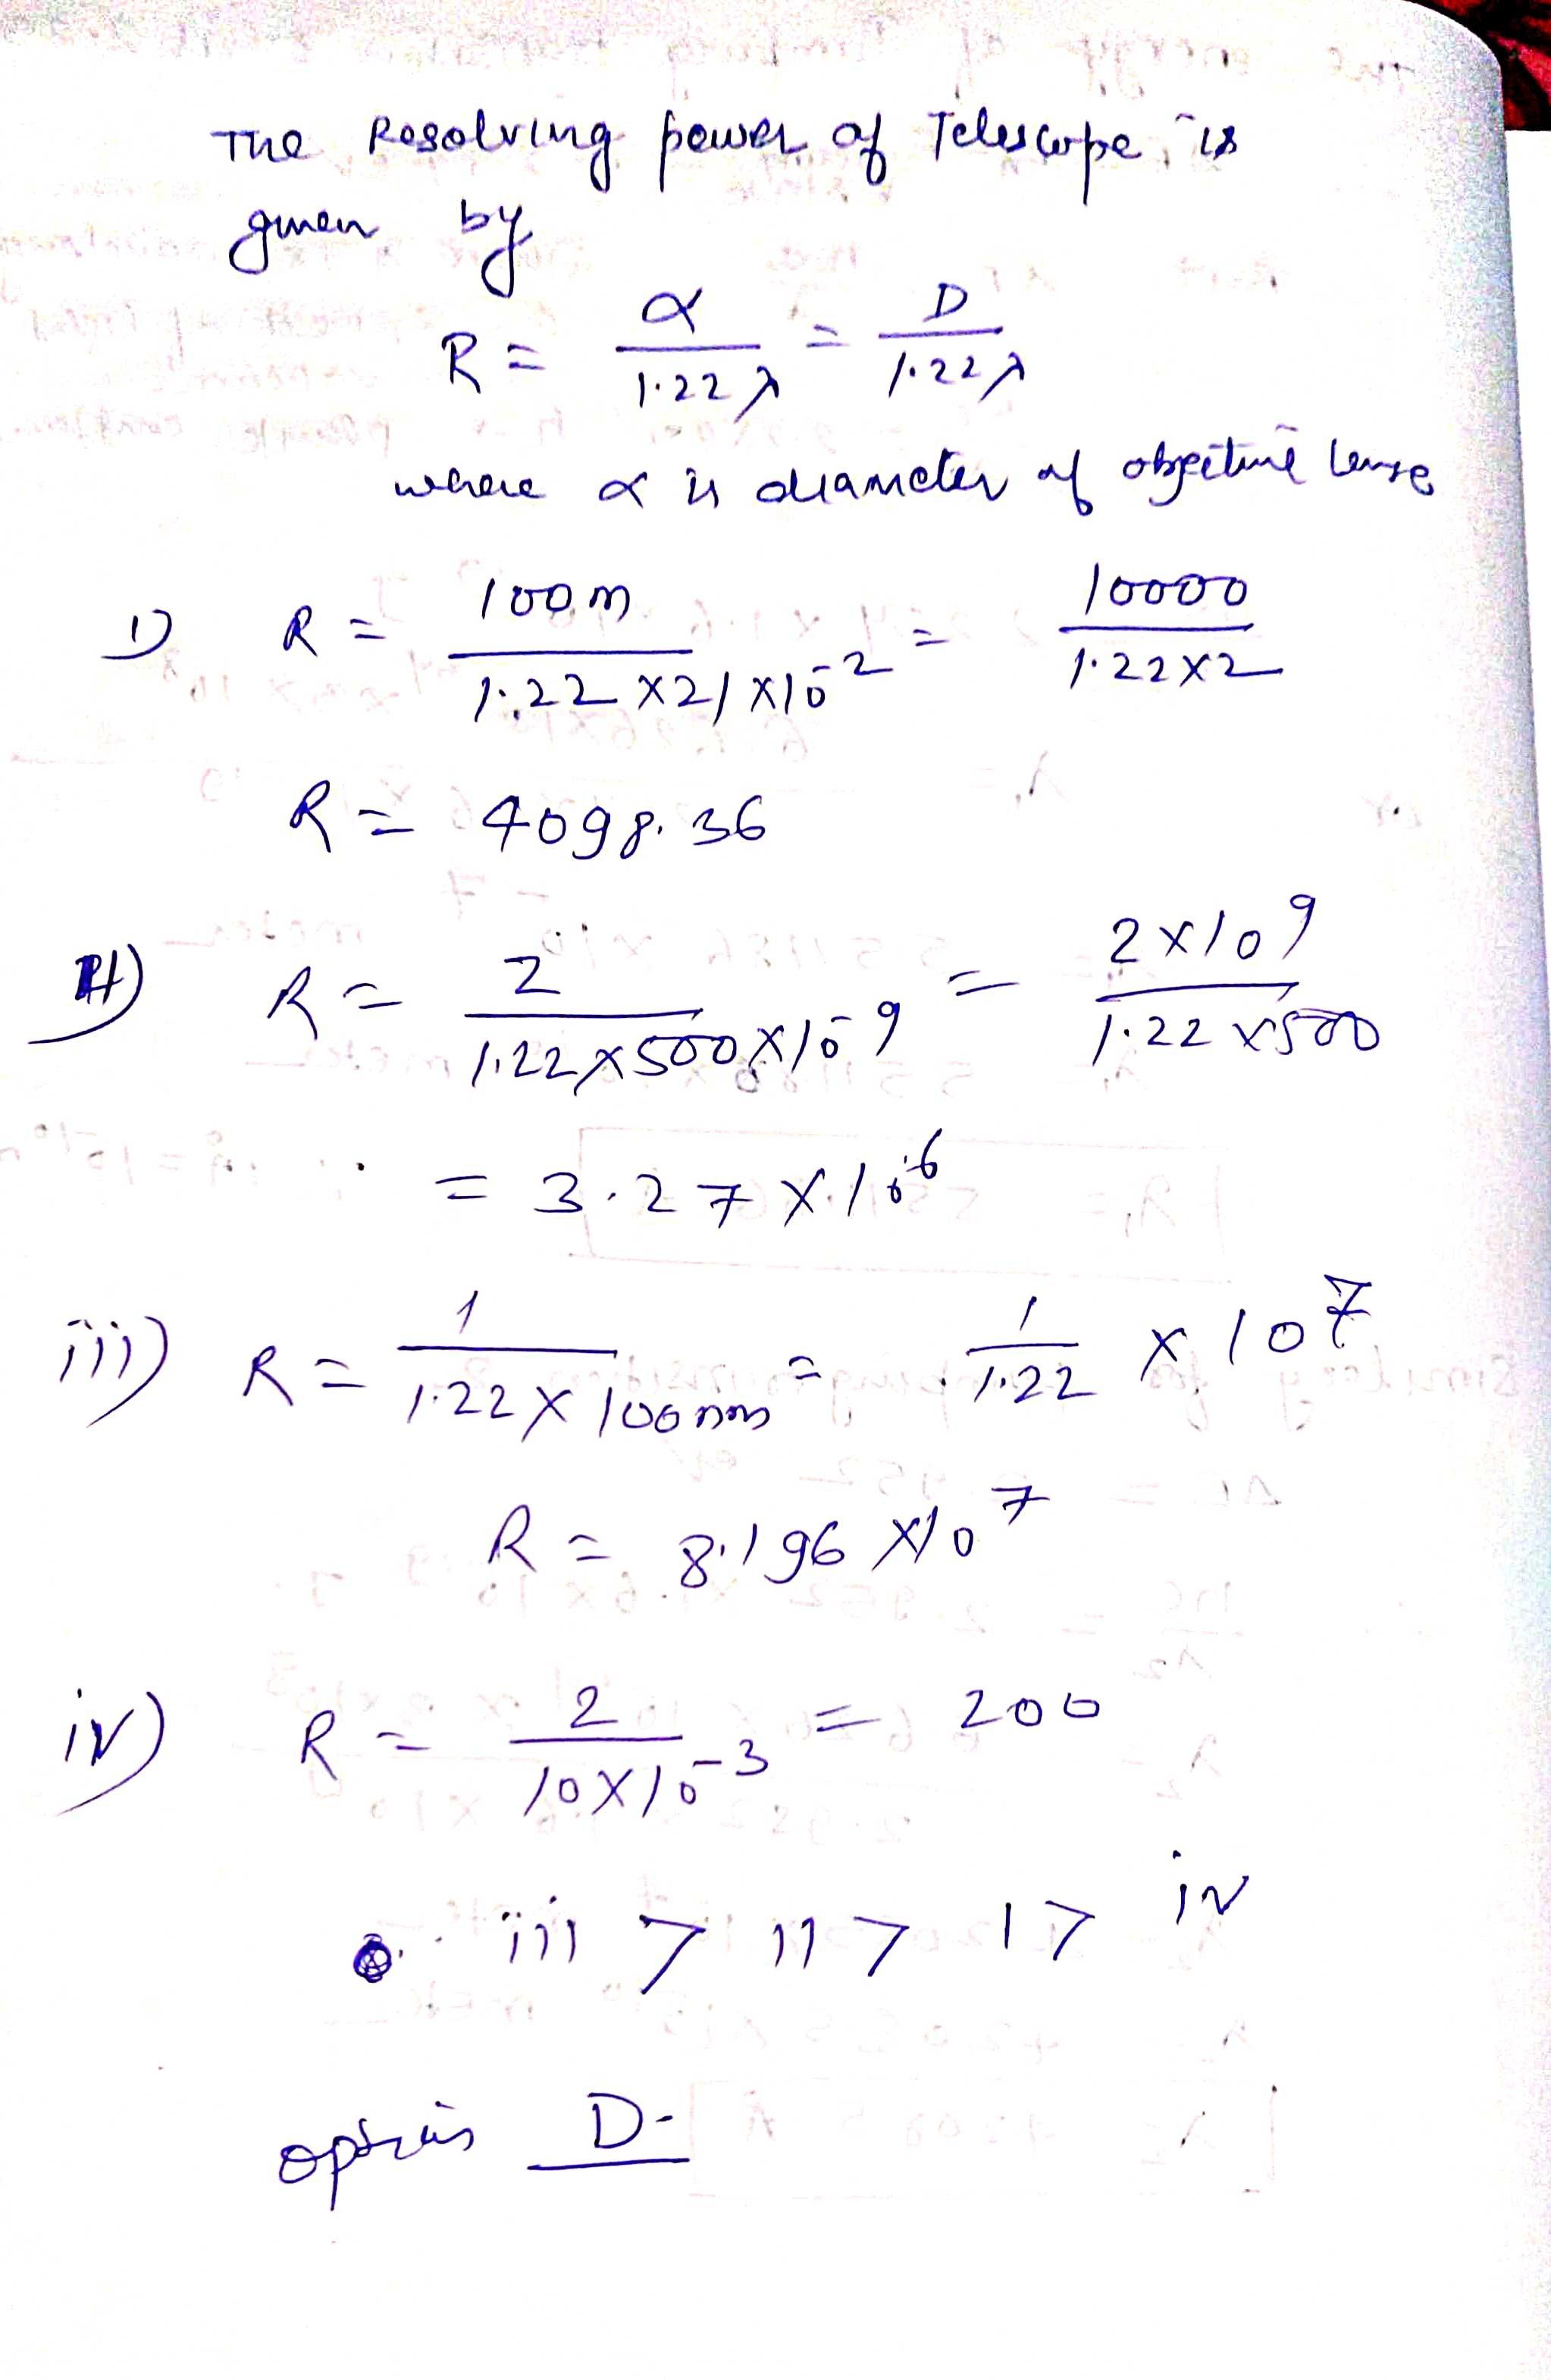 The Resolving power of Telescope is
given by
R = α / 1.22 λ = D / 1.22 λ
where α is diameter of objective lense
1) R = 100m / 1.22 × 21 × 10^-2 = 10000 / 1.22×2
R = 4098.36
II) R = 2 / 1.22 × 500 × 10^-9 = 2×10^9 / 1.22 × 500
= 3.27 × 10^6
iii) R = 1 / 1.22 × 100nm = 1 / 1.22 × 10^7
R = 8.196 × 10^7
iv) R = 2 / 10×10^-3 = 200
iii > 11 > 1 > iv
option D-